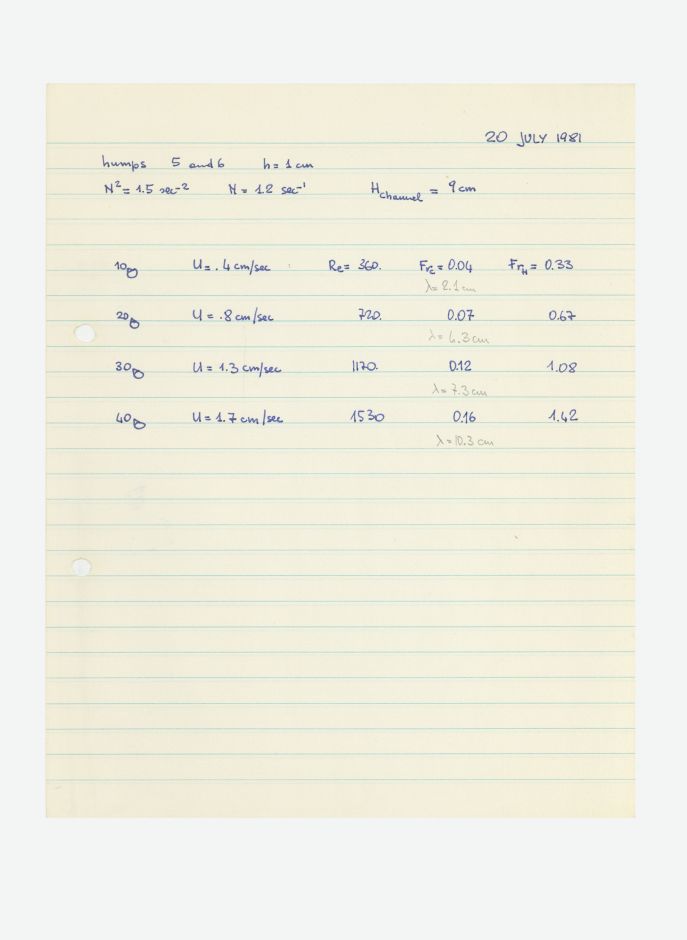 20 JULY 1981
humps 5 and 6 h = 1 cm
N² = 1.5 sec⁻² N = 1.2 sec⁻¹ H channel = 9 cm
10 U = .4 cm/sec Re = 360. Fr = 0.04 Fr = 0.33
λ = 2.1 cm
20 U = .8 cm/sec 720. 0.07 0.67
λ = 4.3 cm
30 U = 1.3 cm/sec 1170. 0.12 1.08
λ = 7.3 cm
40 U = 1.7 cm/sec 1530 0.16 1.42
λ = 10.3 cm